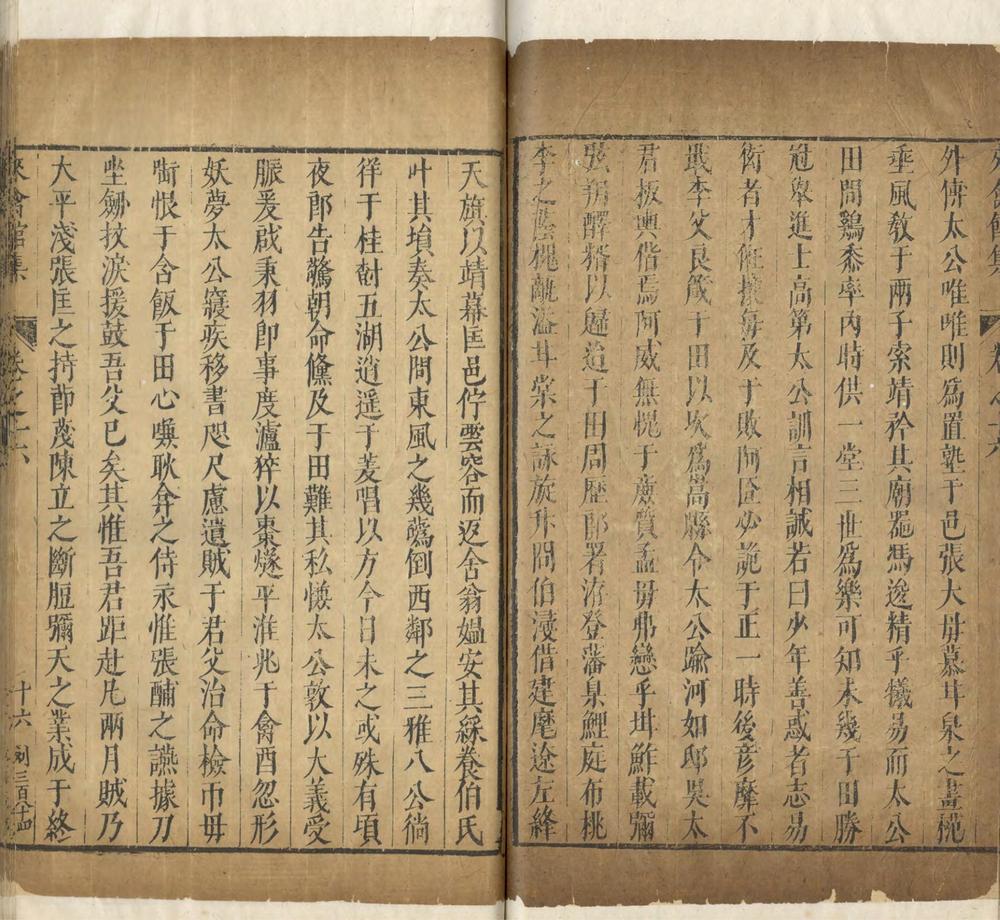 外傅太公唯唯則為置塾于邑張大母慕茸泉之畫槴
垂風教于兩子索靖矜其廟器馮逡精乎犧易而太公
田間鷄黍率內時供一堂三世為樂可知未幾于田勝
冠舉進士高第太公訓言相誡若曰少年善惑者志易
衒者才
每及于敗阿匼必詭于正一時後彥靡不
戢李父良箴于田以次為嵩縣令太公踰河如邸吳太
君板輿偕焉阿威無槴于薏贄孟母弗戀乎坩鮓載彌
以歸迨于田周歷郎署洊登藩臬鯉庭布桃
李之蔭槴
溢茸棠之詠旋升冏伯浸借建麾途左絳
天旗以靖幕匡邑佇雲容而返舍翁媼安其綵養伯氏
叶其塤奏太公問東風之幾薦倒西鄰之三雅八公徜
徉于桂樹五湖逍遥于菱唱以方今日未之或殊有頃
夜郎告驚朝命儵及于田難其私懐太公敦以大義受
脤爰啟秉羽即事度瀘猝以棗燧平淮兆于禽酉忽形
妖夢太公寢疾移書咫尺慮遺賊于君父治命檢帀毋
啣恨于含飯于田心喚耿弇之侍永惟張酺之讌據刀
坐劒抆淚援鼓吾父已矣其惟吾君距赴凡兩月賊乃
大平淺張匡之持節蔑陳立之斷脰彌天之業成于終
來禽館集
卷之十六
十六
刻三百八十四